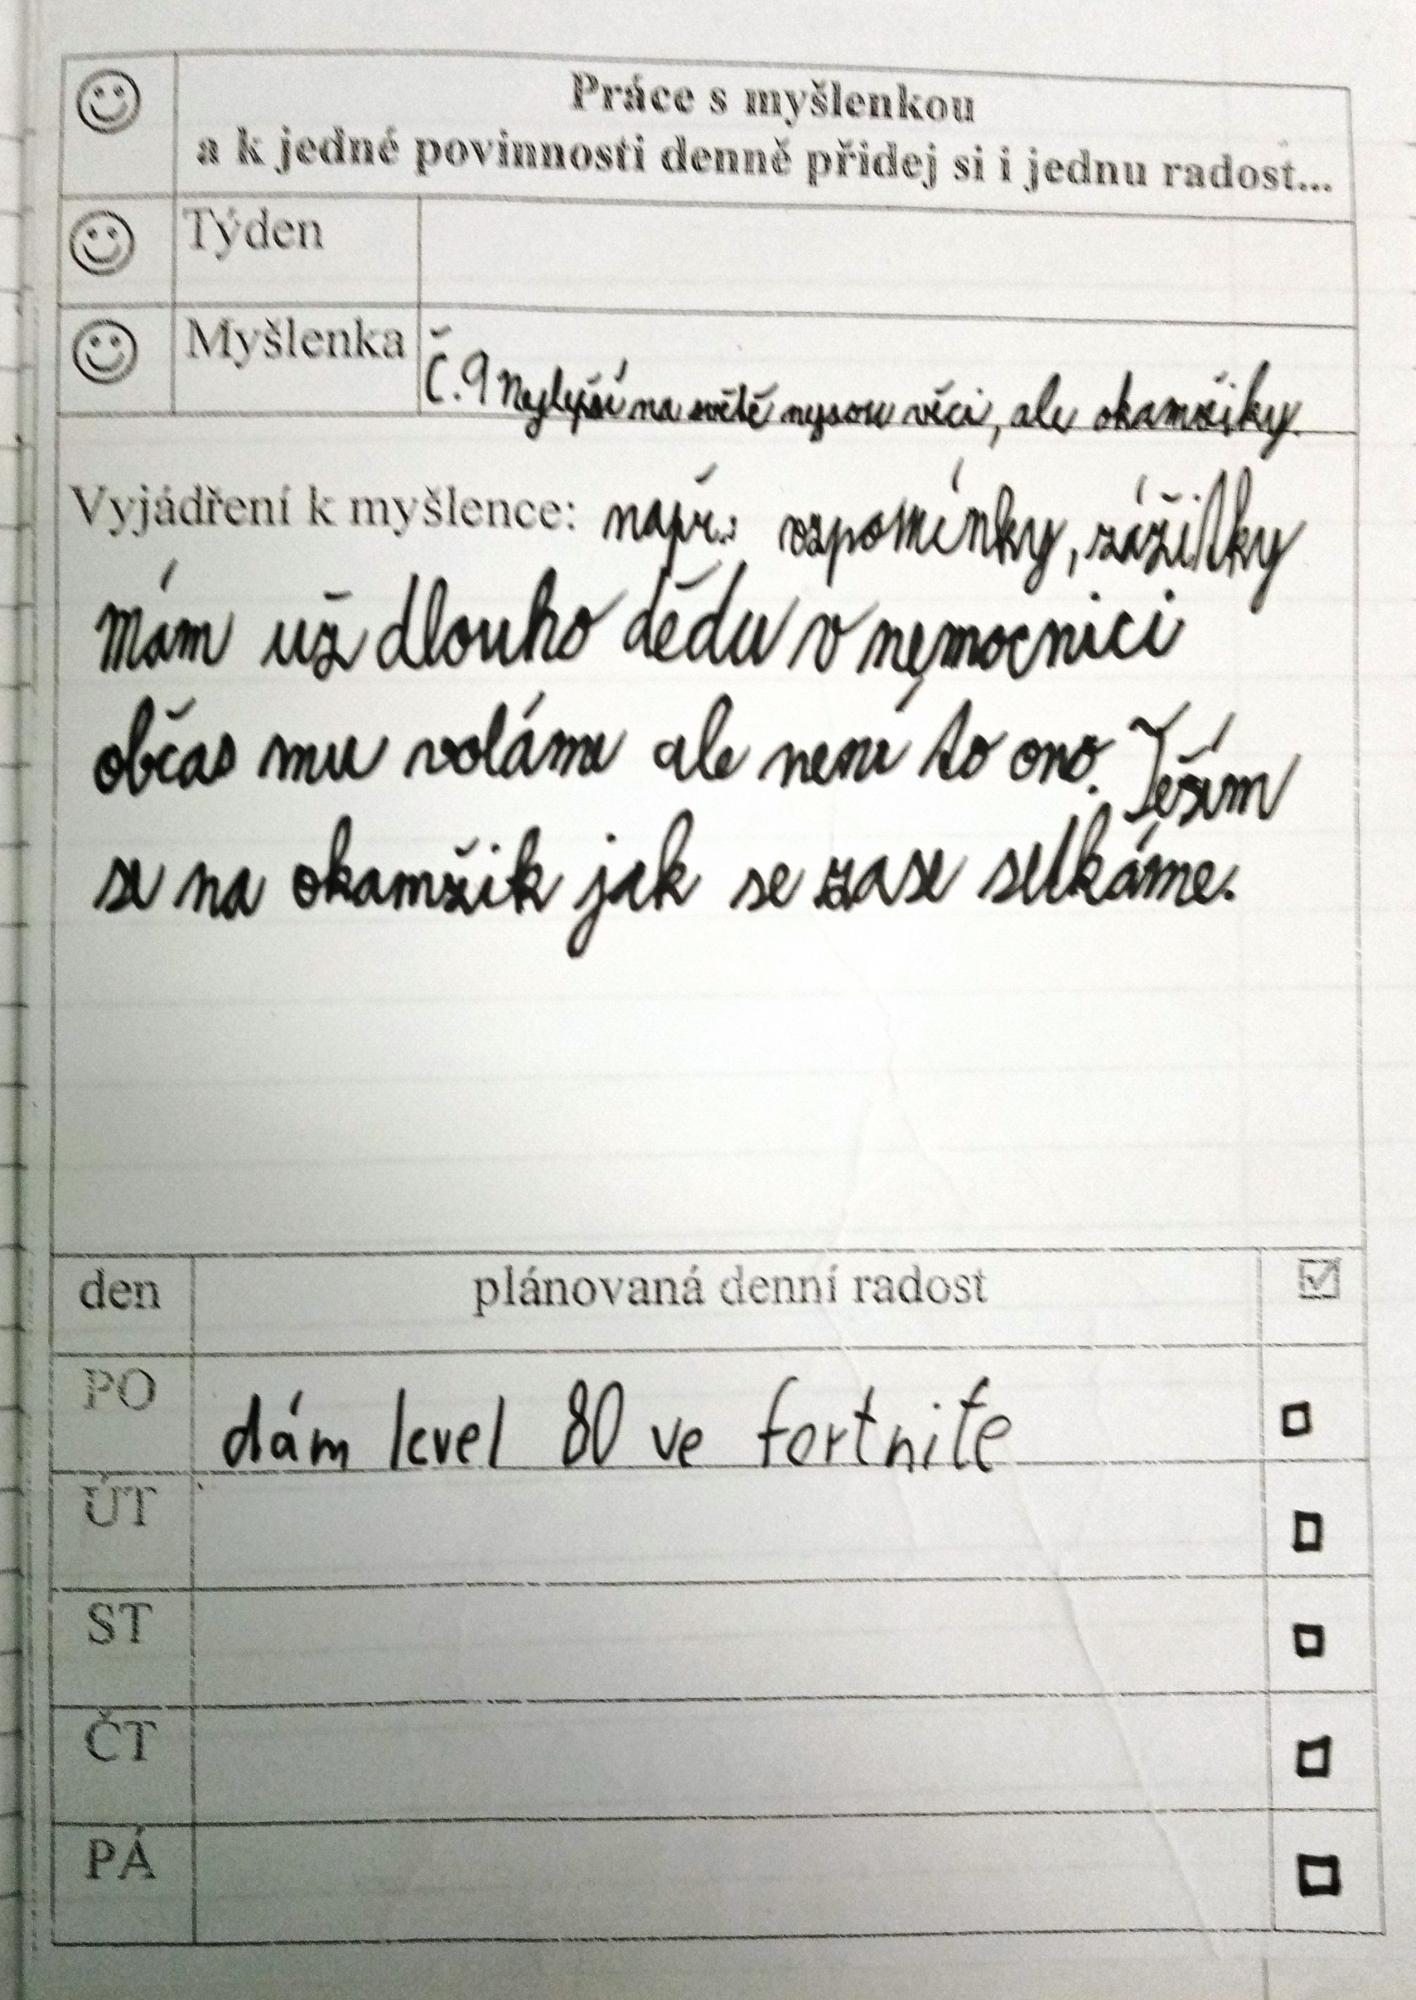 Práce s myšlenkou
a k jedné povinnosti denně přidej si i jednu radost...
Týden
Myšlenka
Č.9 Nejlepší na světě nejsou věci, ale okamžiky.
Vyjádření k myšlence: např.: vzpomínky, zážitky
mám už dlouho dědu v nemocnici
občas mu voláme ale není to ono. Těším
se na okamžik jak se zase setkáme.
den plánovaná denní radost
PO dám level 80 ve fortnite
ÚT
ST
ČT
PÁ